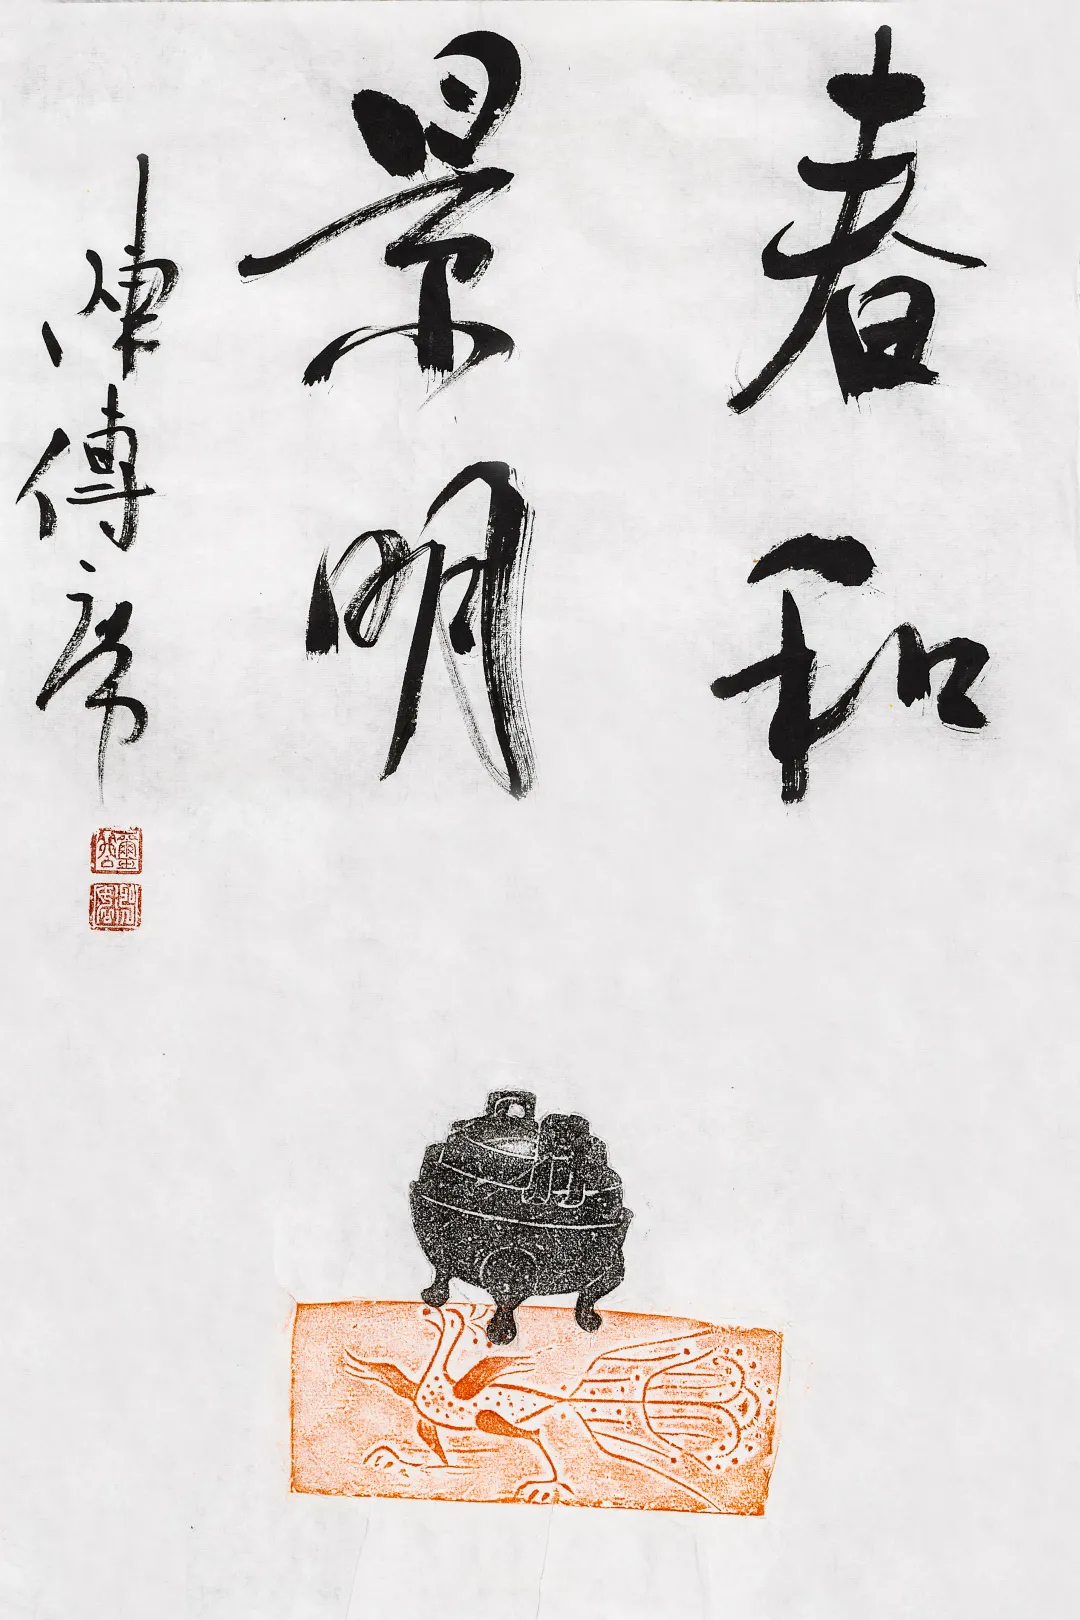 春和
景明
陳傳席